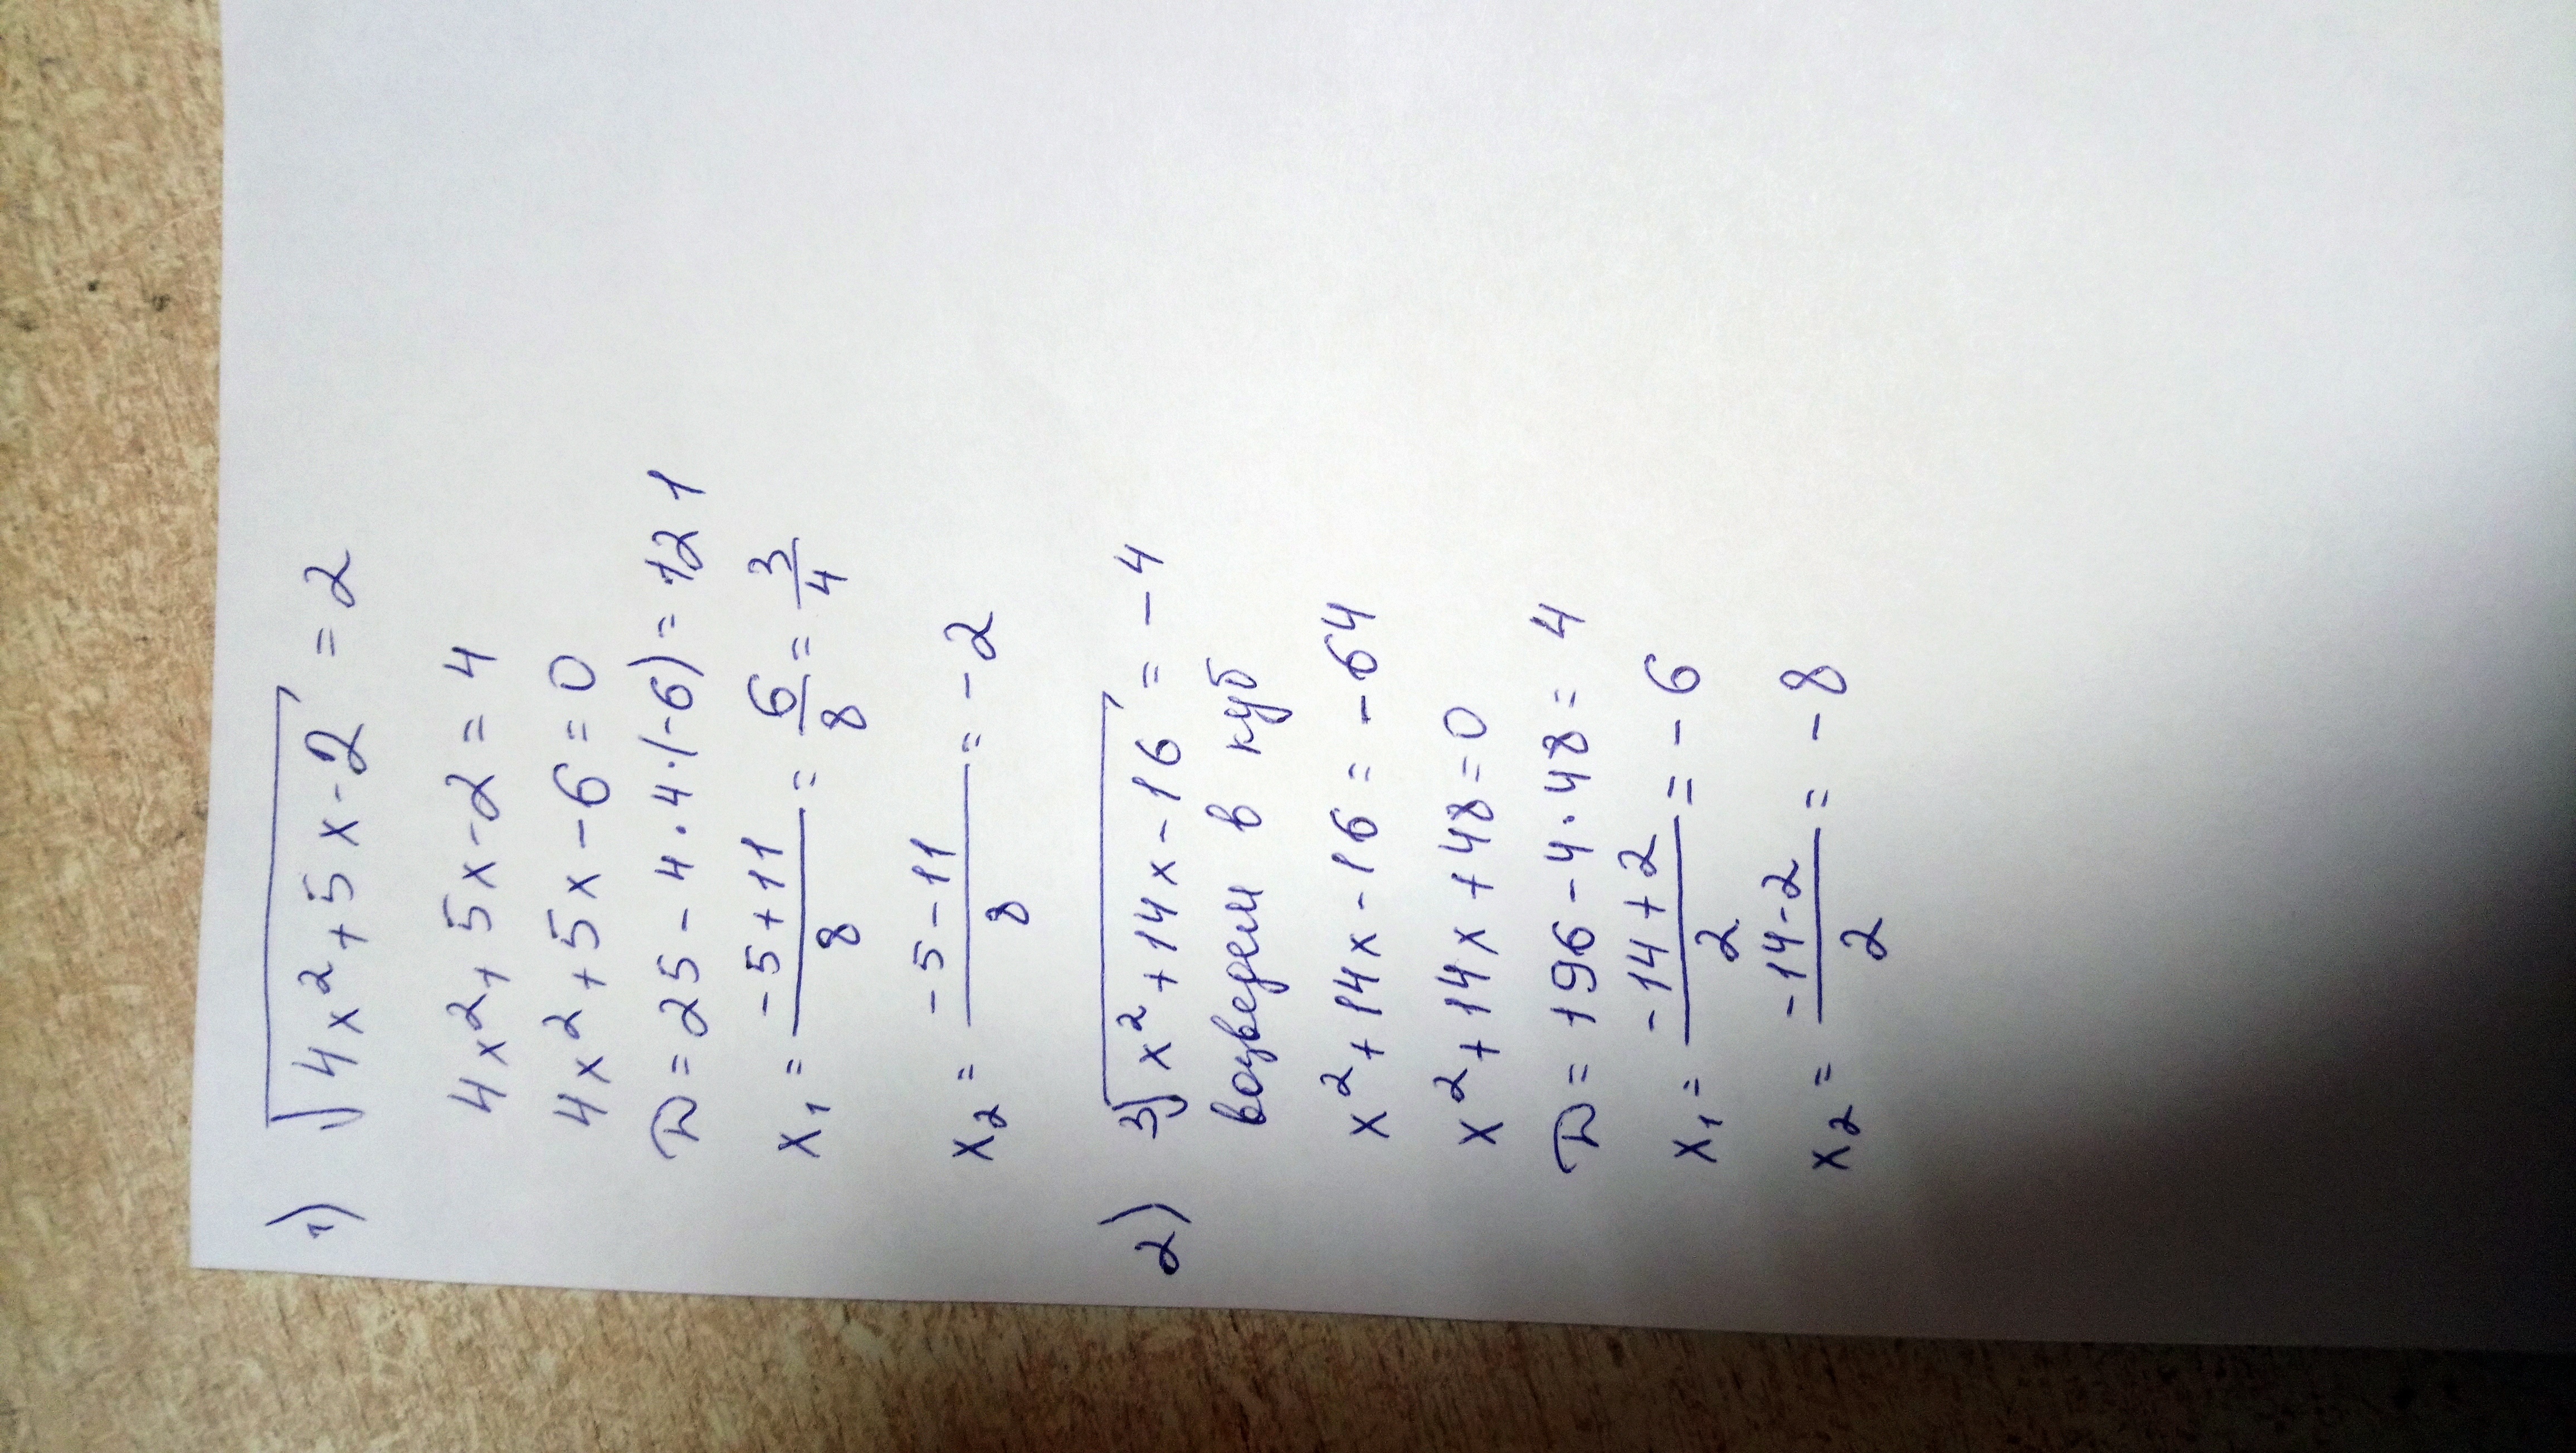 1) √4x²+5x-2 = 2
4x²+5x-2=4
4x²+5x-6=0
D=25-4·4·(-6)=121
x₁ = (-5+11)/8 = 6/8 = 3/4
x₂ = (-5-11)/8 = -2
2) ³√x²+14x-16 = -4
возведем в куб
x²+14x-16=-64
x²+14x+48=0
D=196-4·48=4
x₁ = (-14+2)/2 = -6
x₂ = (-14-2)/2 = -8